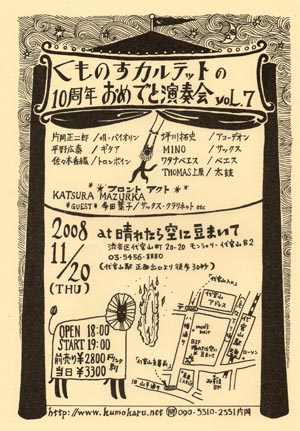 くものすカルテットの
10周年おめでと演奏会 vol.7
片岡正二郎/唄・バイオリン
平野広泰/ギタア
佐々木香織/トロンボイン
坪川拓史/アコーデオン
MINO/サックス
ワタナベペエス/ベエス
THOMAS上原/太鼓
フロント アクト
KATSURA MAZURKA
*GUEST* 多田葉子/サックス・クラリネット etc
2008
11/20
(THU)
at 晴れたら空に豆まいて
渋谷区代官山町 20-20 モンシェリー代官山 B2
03-5456-8880
(代官山駅 正面出口より徒歩30秒)
OPEN 18:00
START 19:00
前売り¥2800
当日 ¥3300
ドリンク別
代官山
アドレス
mod's hair
B2F
晴れたら空に
豆まいて
代官山駅
ローソン
http://www.kumokaru.net 問 090-9310-2351 片岡